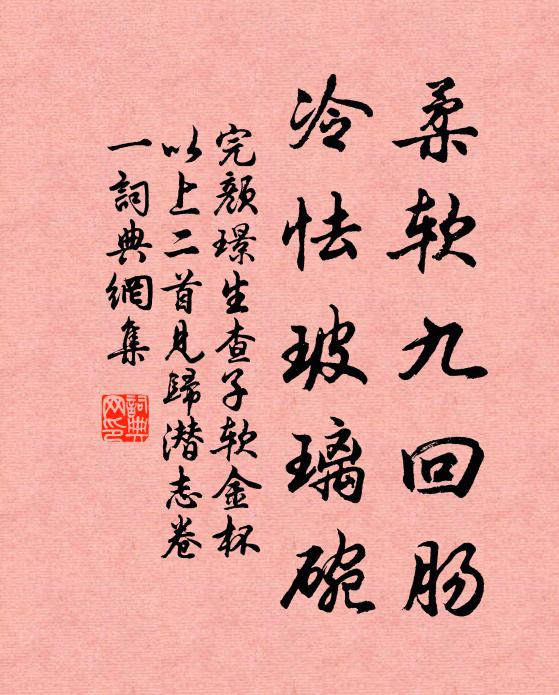 柔软九回肠
冷怯玻璃碗
完颜璟生查子软金杯
以上二首见歸潜志卷
一詞典網集
詞典网印